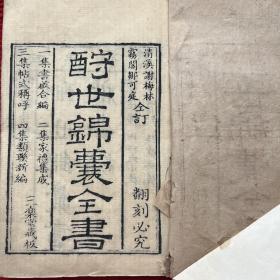 清溪謝梅林
霧閣鄒可庭 仝訂
翻刻必究
酧世錦囊全書
一集書啟合編 二集家禮集成
三集帖式稱呼 四集類聯新編
三樂堂藏板